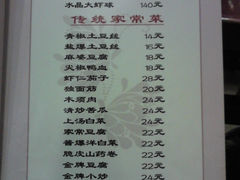 水晶大虾球 140元
传统家常菜
青椒土豆丝 14元
盐爆土豆丝 16元
麻婆豆腐 18元
火椒鸭血 18元
虾仁茄子 28元
烩面筋 20元
木须肉 24元
烧炒苦瓜 24元
上汤白菜 24元
家常豆腐 22元
酱爆洋白菜 22元
脆皮山药卷 22元
金牌豆腐 22元
金牌小炒 24元